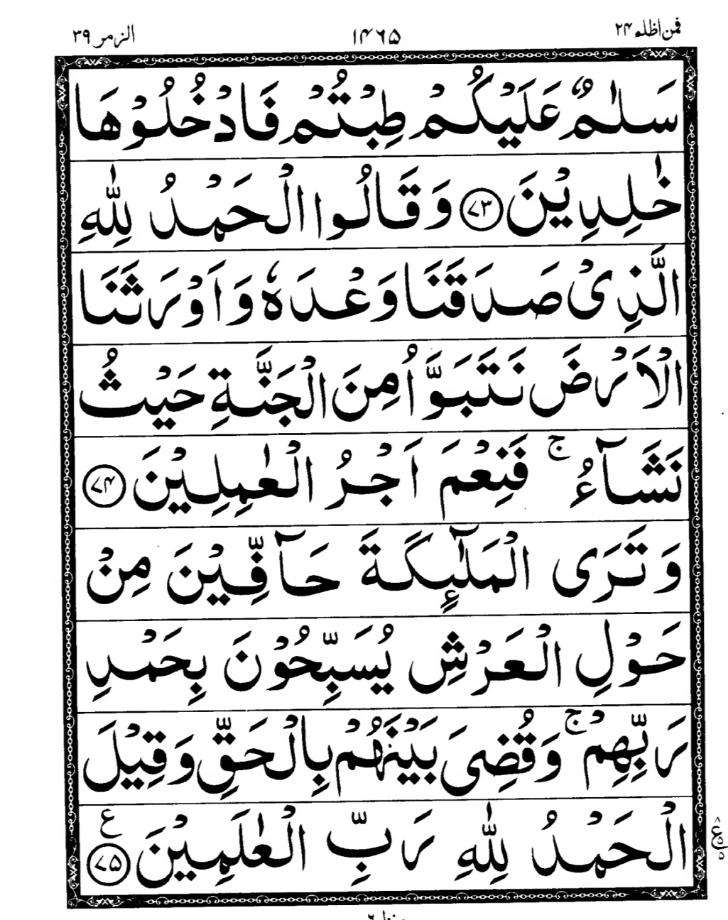 فمن اظلم ۲۴ ۱۴۶۵ الزمر ۳۹
سَلٰمٌ عَلَيْكُمْ طِبْتُمْ فَادْخُلُوْهَا
خٰلِدِيْنَ ﴿۷۳﴾ وَقَالُوا الْحَمْدُ لِلّٰهِ
الَّذِیْ صَدَقَنَا وَعْدَهٗ وَاَوْرَثَنَا
الْاَرْضَ نَتَبَوَّاُ مِنَ الْجَنَّةِ حَيْثُ
نَشَآءُ ۚ فَنِعْمَ اَجْرُ الْعٰمِلِيْنَ ﴿۷۴﴾
وَتَرَی الْمَلٰٓئِكَةَ حَآفِّيْنَ مِنْ
حَوْلِ الْعَرْشِ يُسَبِّحُوْنَ بِحَمْدِ
رَبِّهِمْ ۚ وَقُضِیَ بَيْنَهُمْ بِالْحَقِّ وَقِيْلَ
الْحَمْدُ لِلّٰهِ رَبِّ الْعٰلَمِيْنَ ﴿۷۵﴾ ع